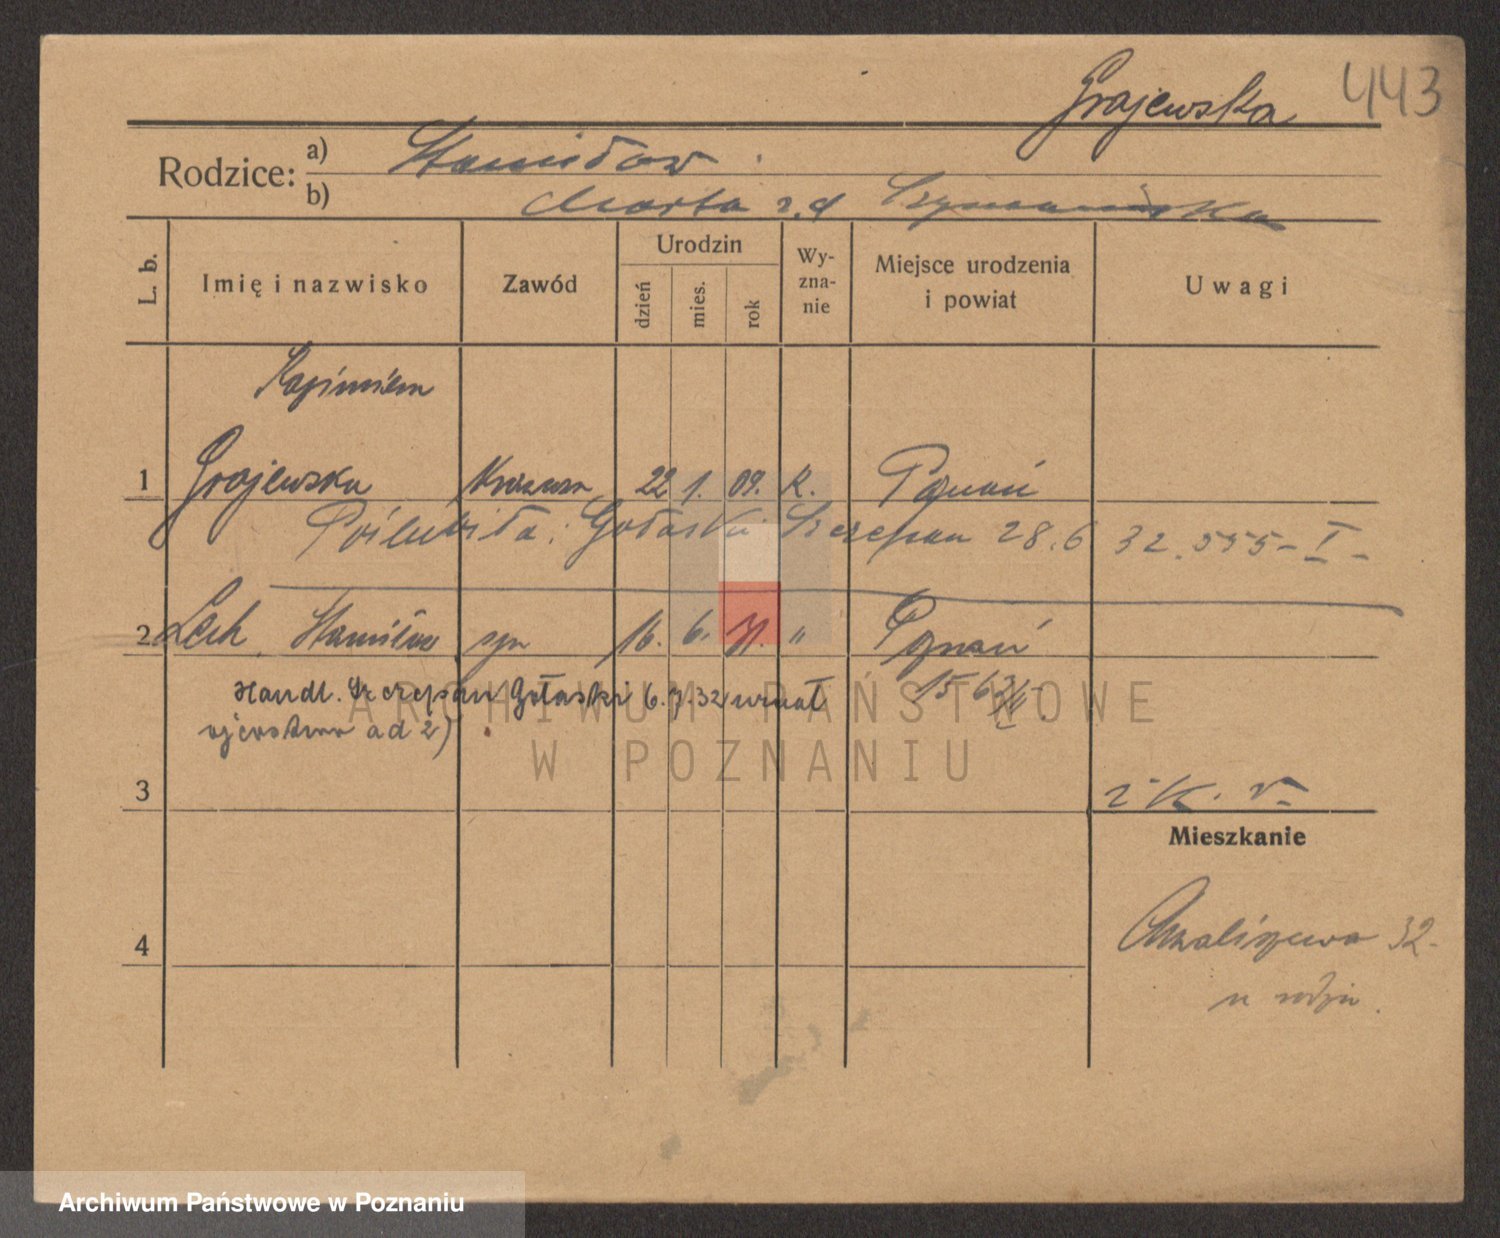 Grajewska 443
Rodzice: a) Stanisław
b) Marta z d Szymańska
L. b. Imię i nazwisko Zawód Urodzin dzień mies. rok Wy-zna-nie Miejsce urodzenia i powiat Uwagi
Kazimiera
1 Grajewska 22 1. 09. R. Poznań
Poślubiła: Gołaski Szczepan 28.6 32. 555-I-
2 Lech Stanisław syn 16. 6. 31. " Poznań
Handl. Szczepan Gołaski 6.7.32 uznał
ojcostwo ad 2)
ARCHIWUM PAŃSTWOWE
W POZNANIU
3
Mieszkanie
4
32.
u rodz.
Archiwum Państwowe w Poznaniu